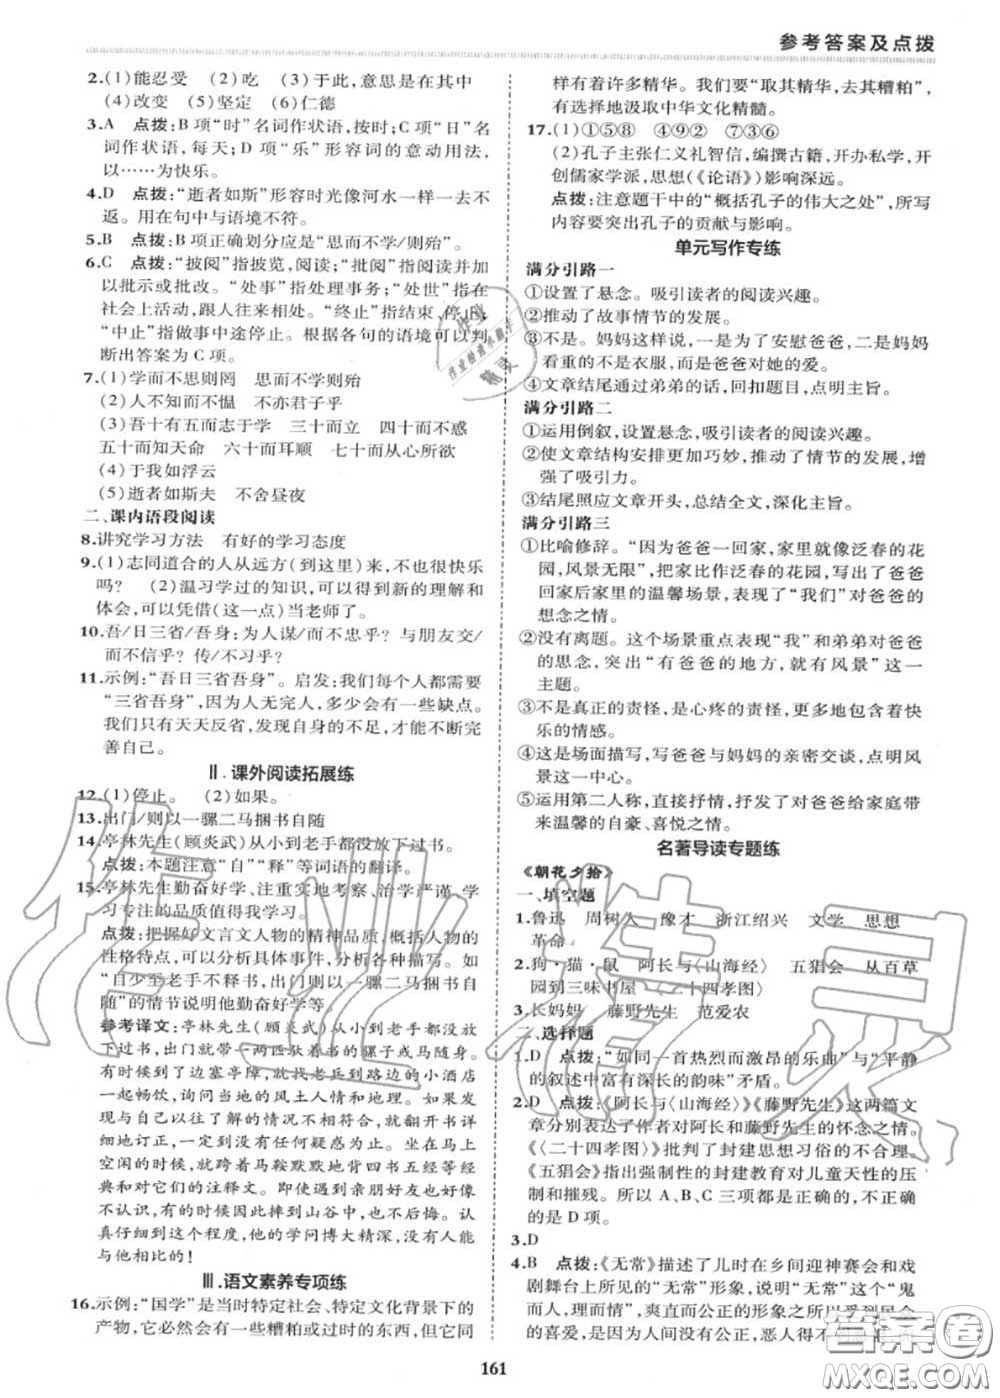 参考答案及点拨
2.(1)能忍受　(2)吃　(3)于此,意思是在其中
(4)改变　(5)坚定　(6)仁德
3.A　点拨:B项“时”名词作状语,按时;C项“日”名
词作状语,每天;D项“乐”形容词的意动用法,
以……为快乐。
4.D　点拨:“逝者如斯”形容时光像河水一样一去不
返。用在句中与语境不符。
5.B　点拨:B项正确划分应是“思而不学/则殆”。
6.C　点拨:“披阅”指披览,阅读;“批阅”指阅读并
加以批示或批改。“处事”指处理事务;“处世”指在
社会上活动,跟人往来相处。“终止”指结束,停止;
“中止”指做事中途停止。根据各句的语境可以判
断出答案为C项。
7.(1)学而不思则罔　思而不学则殆
(2)人不知而不愠　不亦君子乎
(3)吾十有五而志于学　三十而立　四十而不惑
五十而知天命　六十而耳顺　七十而从心所欲
(4)于我如浮云
(5)逝者如斯夫　不舍昼夜
二、课内语段阅读
8.讲究学习方法　有好的学习态度
9.(1)志同道合的人从远方(到这里)来,不也很快乐
吗?　(2)温习学过的知识,可以得到新的理解和
体会,可以凭借(这一点)当老师了。
10.吾/日三省/吾身:为人谋/而不忠乎?与朋友交/
而不信乎?传/不习乎?
11.示例:“吾日三省吾身”。启发:我们每个人都需要
“三省吾身”,因为人无完人,多少会有一些缺点。
我们只有天天反省,发现自身的不足,才能不断完
善自己。
Ⅱ.课外阅读拓展练
12.(1)停止。　(2)如果。
13.出门/则以一骡二马捆书自随
14.亭林先生(顾炎武)从小到老手都没放下过书。
点拨:本题注意“自”“释”等词语的翻译。
15.亭林先生勤奋好学、注重实地考察,治学严谨,学
习专注的品质值得我学习。
点拨:把握好文言文人物的精神品质,概括人物的
性格特点,可以分析具体事件,分析各种描写。如
自少至老手不释书,出门则以一骡二马捆书自随
的情节说明他勤奋好学等。
参考译文:亭林先生(顾炎武)从小到老手都没放
下过书,出门就带一两匹驮着书的骡子或马随同。
有时候到了边塞亭障,就找老兵到路边的小酒店
一起畅饮,询问当地的风土人情和地理。如果发
现和平时了解的情况不相符合,就翻开书本详
细地订正,一定到没有任何疑惑为止。在马上
空闲的时候,就拽着马鞍默默地背四书五经等经
典和对它们的注释文。即使看到亲朋好友也好像
不认识,有的摔到山谷中,也不后悔。认
真仔细到这个地步,他的学问博大精深,没有人能
与他相比的!
Ⅲ.语文素养专项练
16.示例:“国学”是当时特定社会、特定文化背景下的
产物,它必然会有一些糟粕或过时的东西,但它同
样有着许多精华。我们要“取其精华,去其糟粕”,
有选择地汲取中华文化精髓。
17.(1)①⑤⑧　④⑨②　⑦③⑥
(2)孔子主张仁义礼智信,编撰古籍,开办私学,开
创儒家学派,思想(《论语》)影响深远。
点拨:注意题干中的“概括孔子的伟大之处”,书写
内容要突出孔子的贡献与影响。
单元写作专练
满分引路一
①设置了悬念。吸引读者的阅读兴趣。
②推动了故事情节的发展。
③不是。妈妈这样说,一是为了安慰爸爸,二是妈妈
看重的不是衣服,而是爸爸对她的爱。
④文章结尾通过弟弟的话,回扣题目,点明主旨。
满分引路二
①运用倒叙,设置悬念,吸引读者的阅读兴趣。
②使文章结构安排更加巧妙,推动了情节的发展,增
强了吸引力。
③结尾照应文章开头,总结全文,深化主旨。
满分引路三
①比喻修辞。“因为爸爸一回家,家里就像泛春的花
园,风景无限”,把家比作泛春的花园,写出了爸爸
回家后家里的温馨场景,表现了“我们”对爸爸的
想念之情。
②没有离题。这个场景重点表现“我”和弟弟对爸爸
的思念,突出“有爸爸的地方,就有风景”这一
主题。
③不是真正的责怪,是心疼的责怪,更多地包含着快
乐的情感。
④这是场面描写,写爸爸与妈妈的亲密交谈,点明风
景这一中心。
⑤运用第二人称,直接抒情,抒发了对爸爸给家庭带
来温馨的自豪、喜悦之情。
名著导读专题练
《朝花夕拾》
一、填空题
1.鲁迅　周树人　豫才　浙江绍兴　文学　思想
革命
2.狗·猫·鼠　阿长与《山海经》　五猖会　从百草
园到三味书屋　《二十四孝图》
3.长妈妈　藤野先生　范爱农
二、选择题
1.D　点拨:“如同一首热烈而激昂的乐曲”与“平静
的叙述中富有深长的韵味”矛盾。
2.D　点拨:《阿长与〈山海经〉》《藤野先生》这两篇文
章分别表达了作者对阿长和藤野先生的怀念之情。
《〈二十四孝图〉》批判了封建思想习俗的不合理。
《五猖会》指出强制性的封建教育对儿童天性的压
制和摧残。所以A、B、C三项都是正确的,不正确的
是D项。
3.D
4.B　点拨:《无常》描述了儿时在乡间迎神赛会和戏
剧舞台上所见的“无常”形象,说明“无常”这个“鬼
而人,理而情”,爽直而公正的形象之所以受到民众
的喜爱,是因为人间没有公正,恶人得不
161
作业精灵
答案圈
MXQE.COM